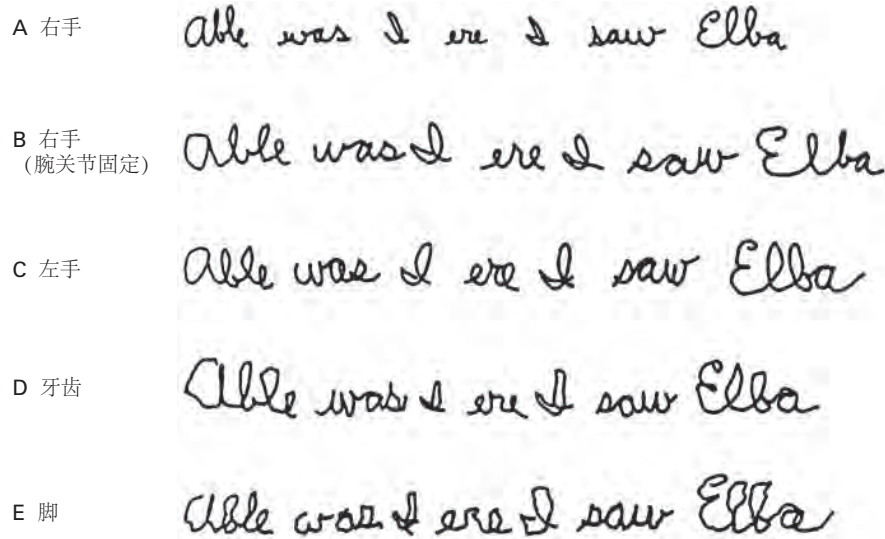 A 右手 Able was I ere I saw Elba
B 右手
(腕关节固定) Able was I ere I saw Elba
C 左手 Able was I ere I saw Elba
D 牙齿 Able was I ere I saw Elba
E 脚 Able was I ere I saw Elba